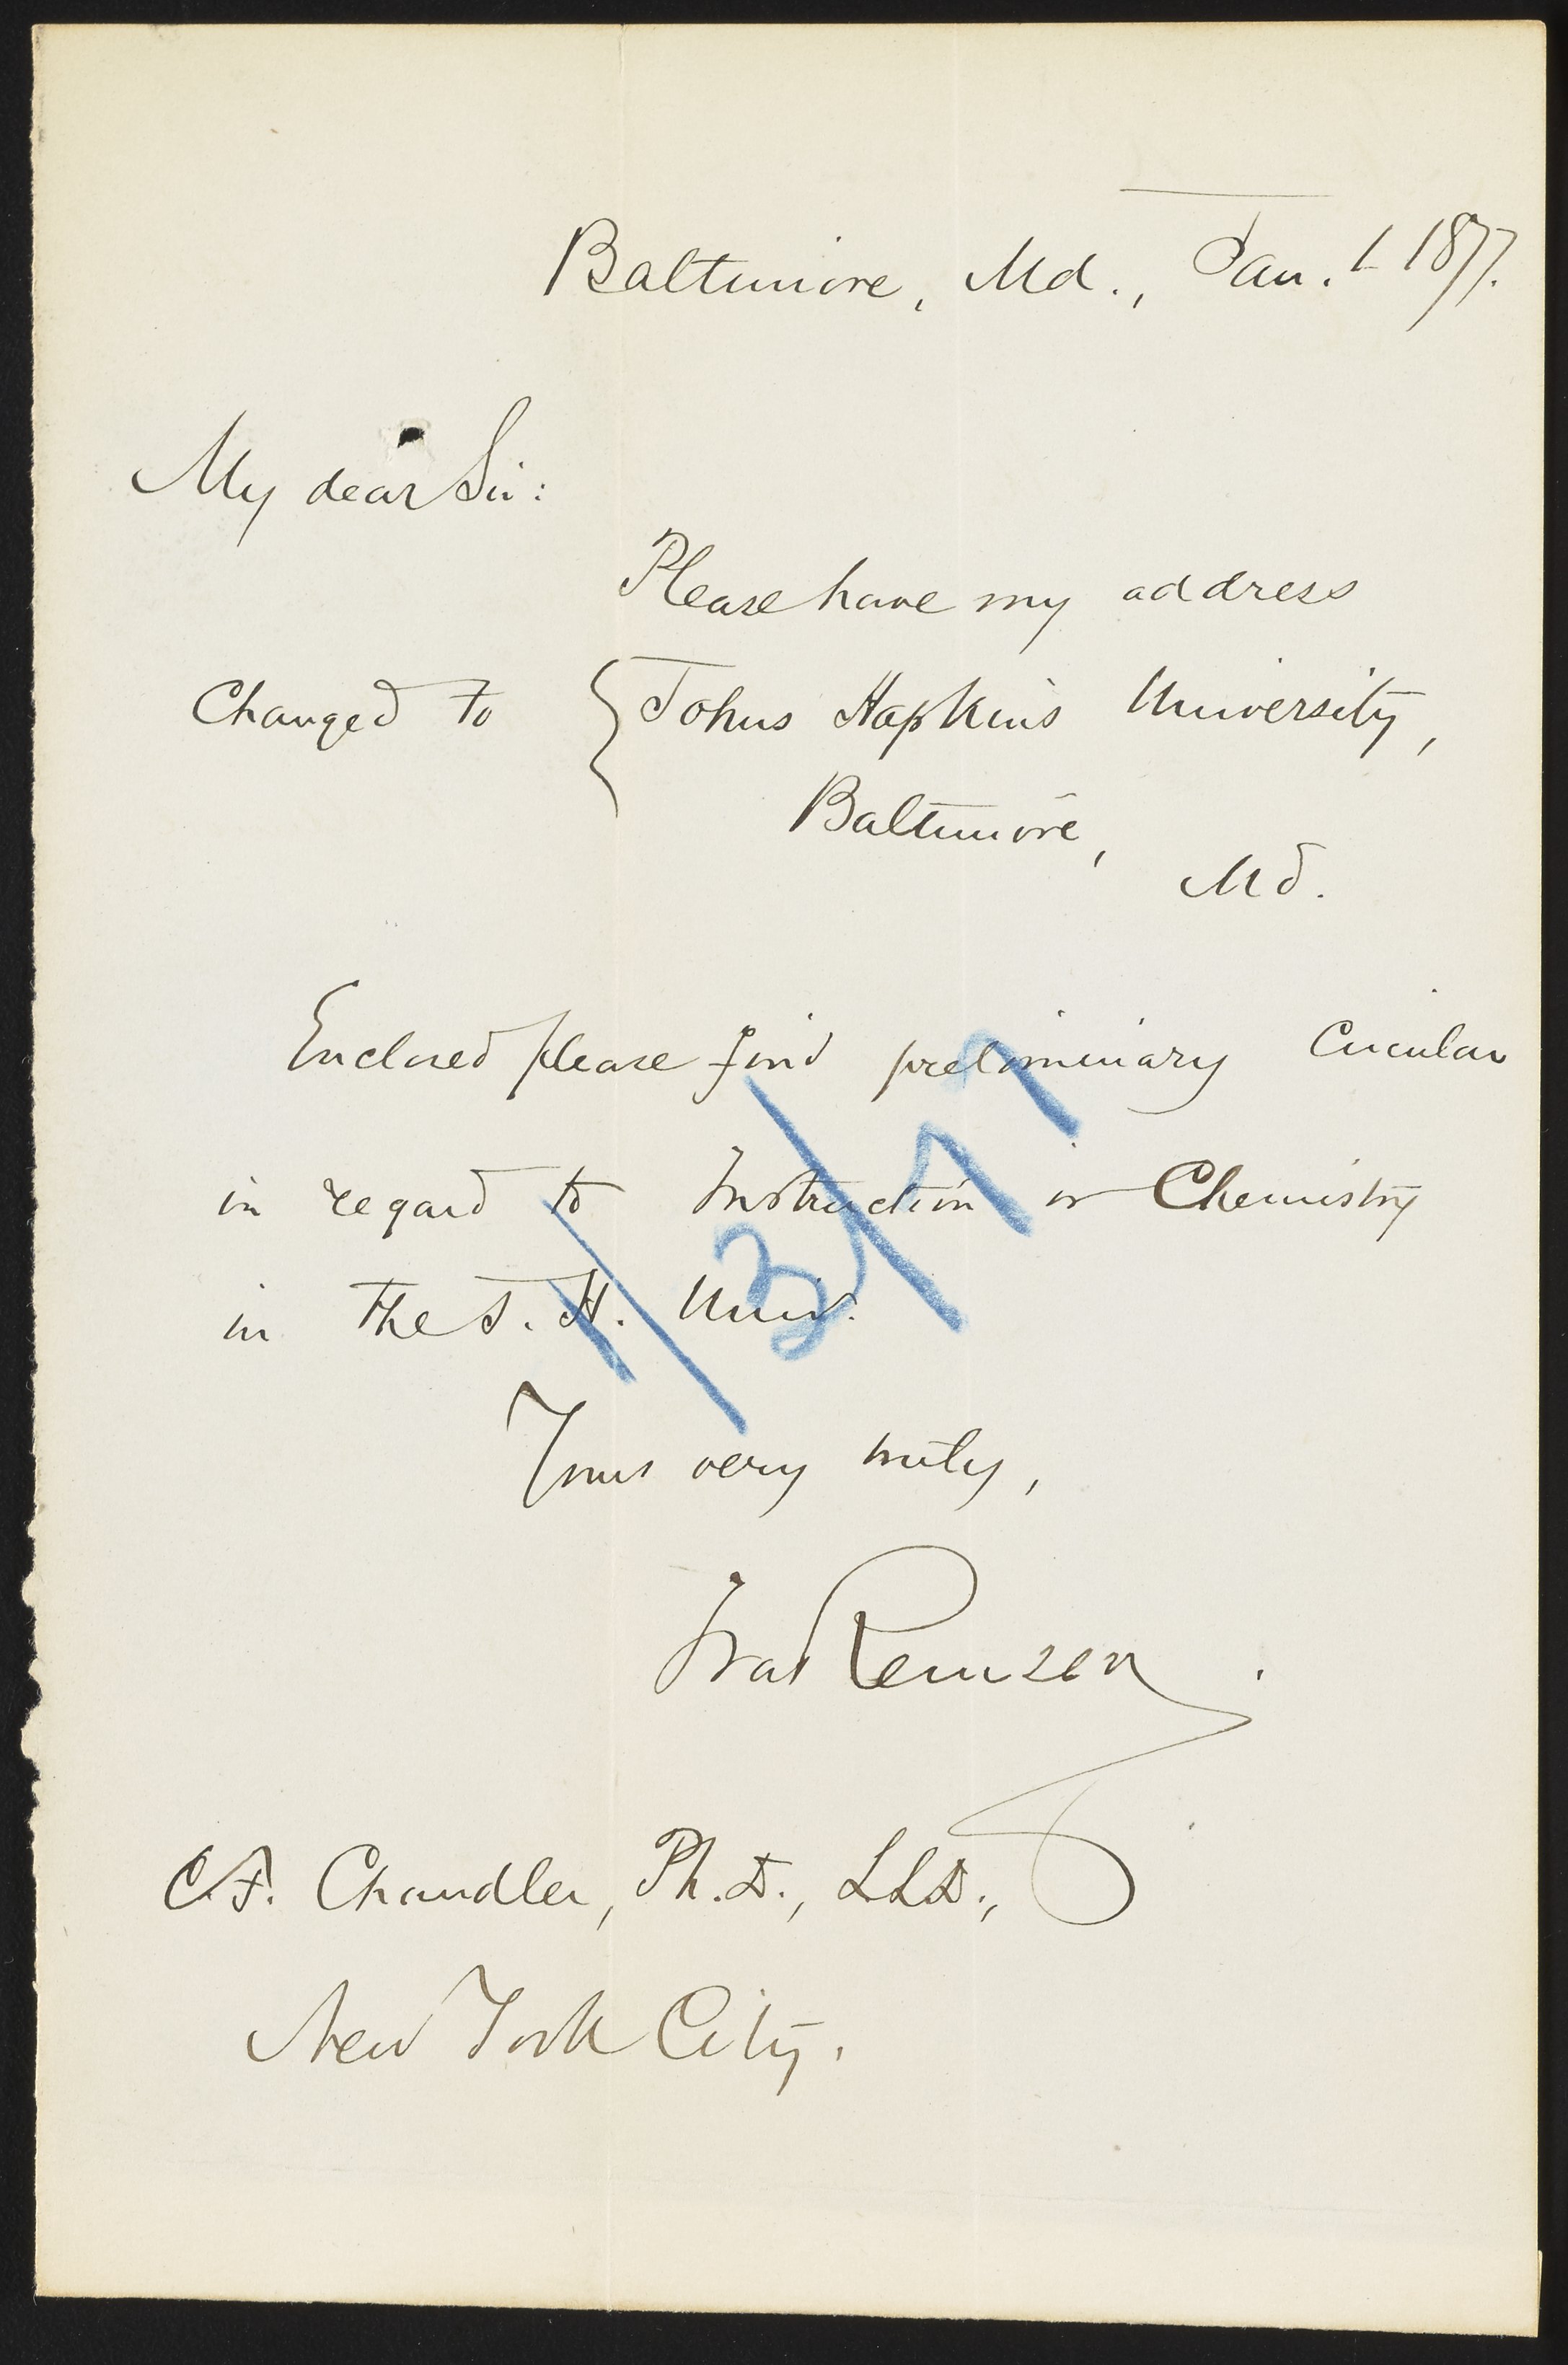 Baltimore, Md., Jan. 1 1877.
My dear Sir:
Please have my address
Changed to { Johns Hopkins University,
Baltimore,
Md.
Enclosed please find preliminary Circular
in regard to Instruction in Chemistry
in the J. H. Univ.
1/3/77
Yours very truly,
Ira Remsen.
C.F. Chandler, Ph.D., LLD.,
New York City.